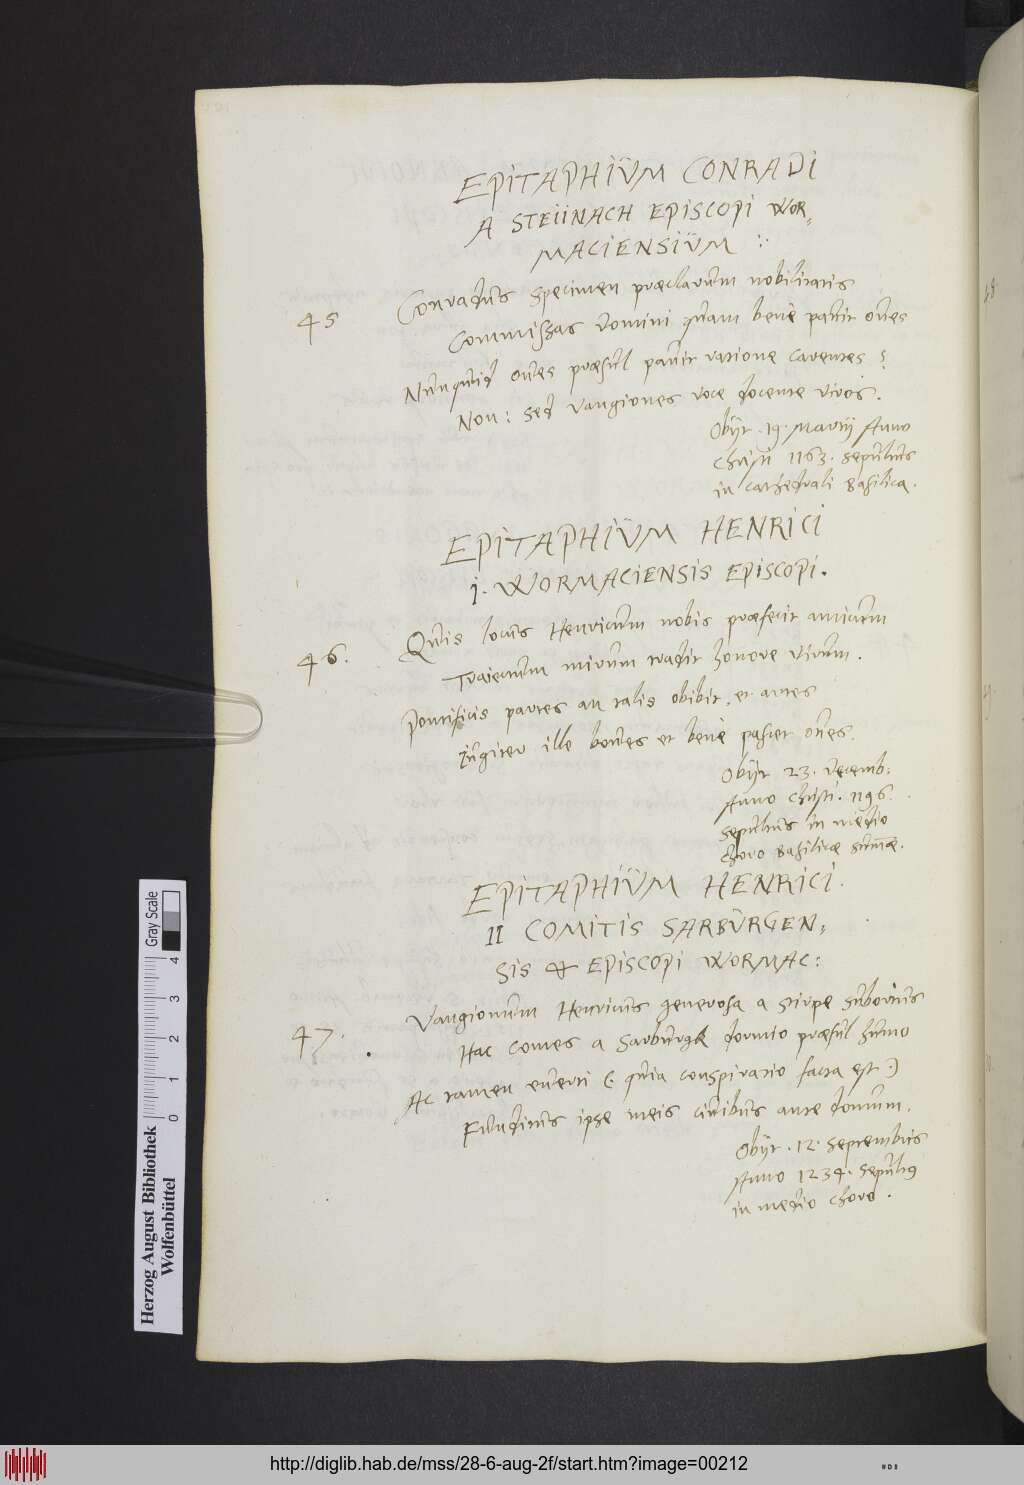 EPITAPHIUM CONRADI
A STEIINACH EPISCOPI WOR=
MACIENSIUM :
45 Conradus specimen præclarum nobilitatis
Commissas domini quam benè pavit oves
Nunquid oves præsul pavit ratione carentes ?
Non : sed Vangiones voce docente viros.
Obijt . 19. Martij Anno
Christi 1163. sepultus
in cathedrali Basilica.
EPITAPHIUM HENRICI
i. WORMACIENSIS EPISCOPI.
46. Quis locus Henricum nobis præfecit amicum
Traiectum mirum tradit honore virum.
Pontificis partes an talis obibit, et artes
iungitur ille bonus et benè pascet oves.
Obijt 23. Decemb:
Anno Christi. 1196.
sepultus in medio
choro Basilicæ summæ.
EPITAPHIUM HENRICI.
II COMITIS SARBURGEN=
SIS & EPISCOPI WORMAC:
47. Vangionum Henricus generosa a stirpe
Hac comes a Sarburgk dormio præsul humo
Ac tamen everti (: quia conspiratio facta est :)
Funditus ipse meis civibus ante domum.
Obijt . 12. Septembris
Anno 1234. Sepultus
in medio choro.
Gray Scale
0 1 2 3 4
Herzog August Bibliothek
Wolfenbüttel
http://diglib.hab.de/mss/28-6-aug-2f/start.htm?image=00212